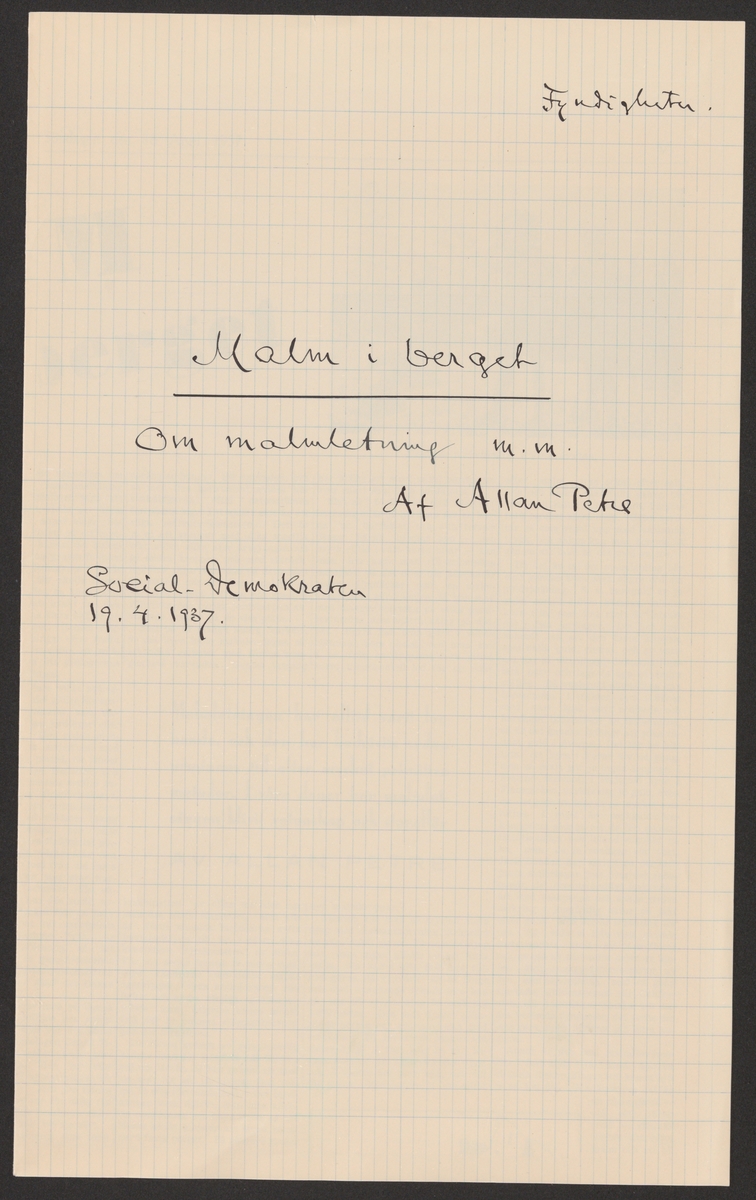 Fyndigheter.
Malm i berget
Om malmletning m.m.
Af Allan Petre
Social-Demokraten
19.4.1937.